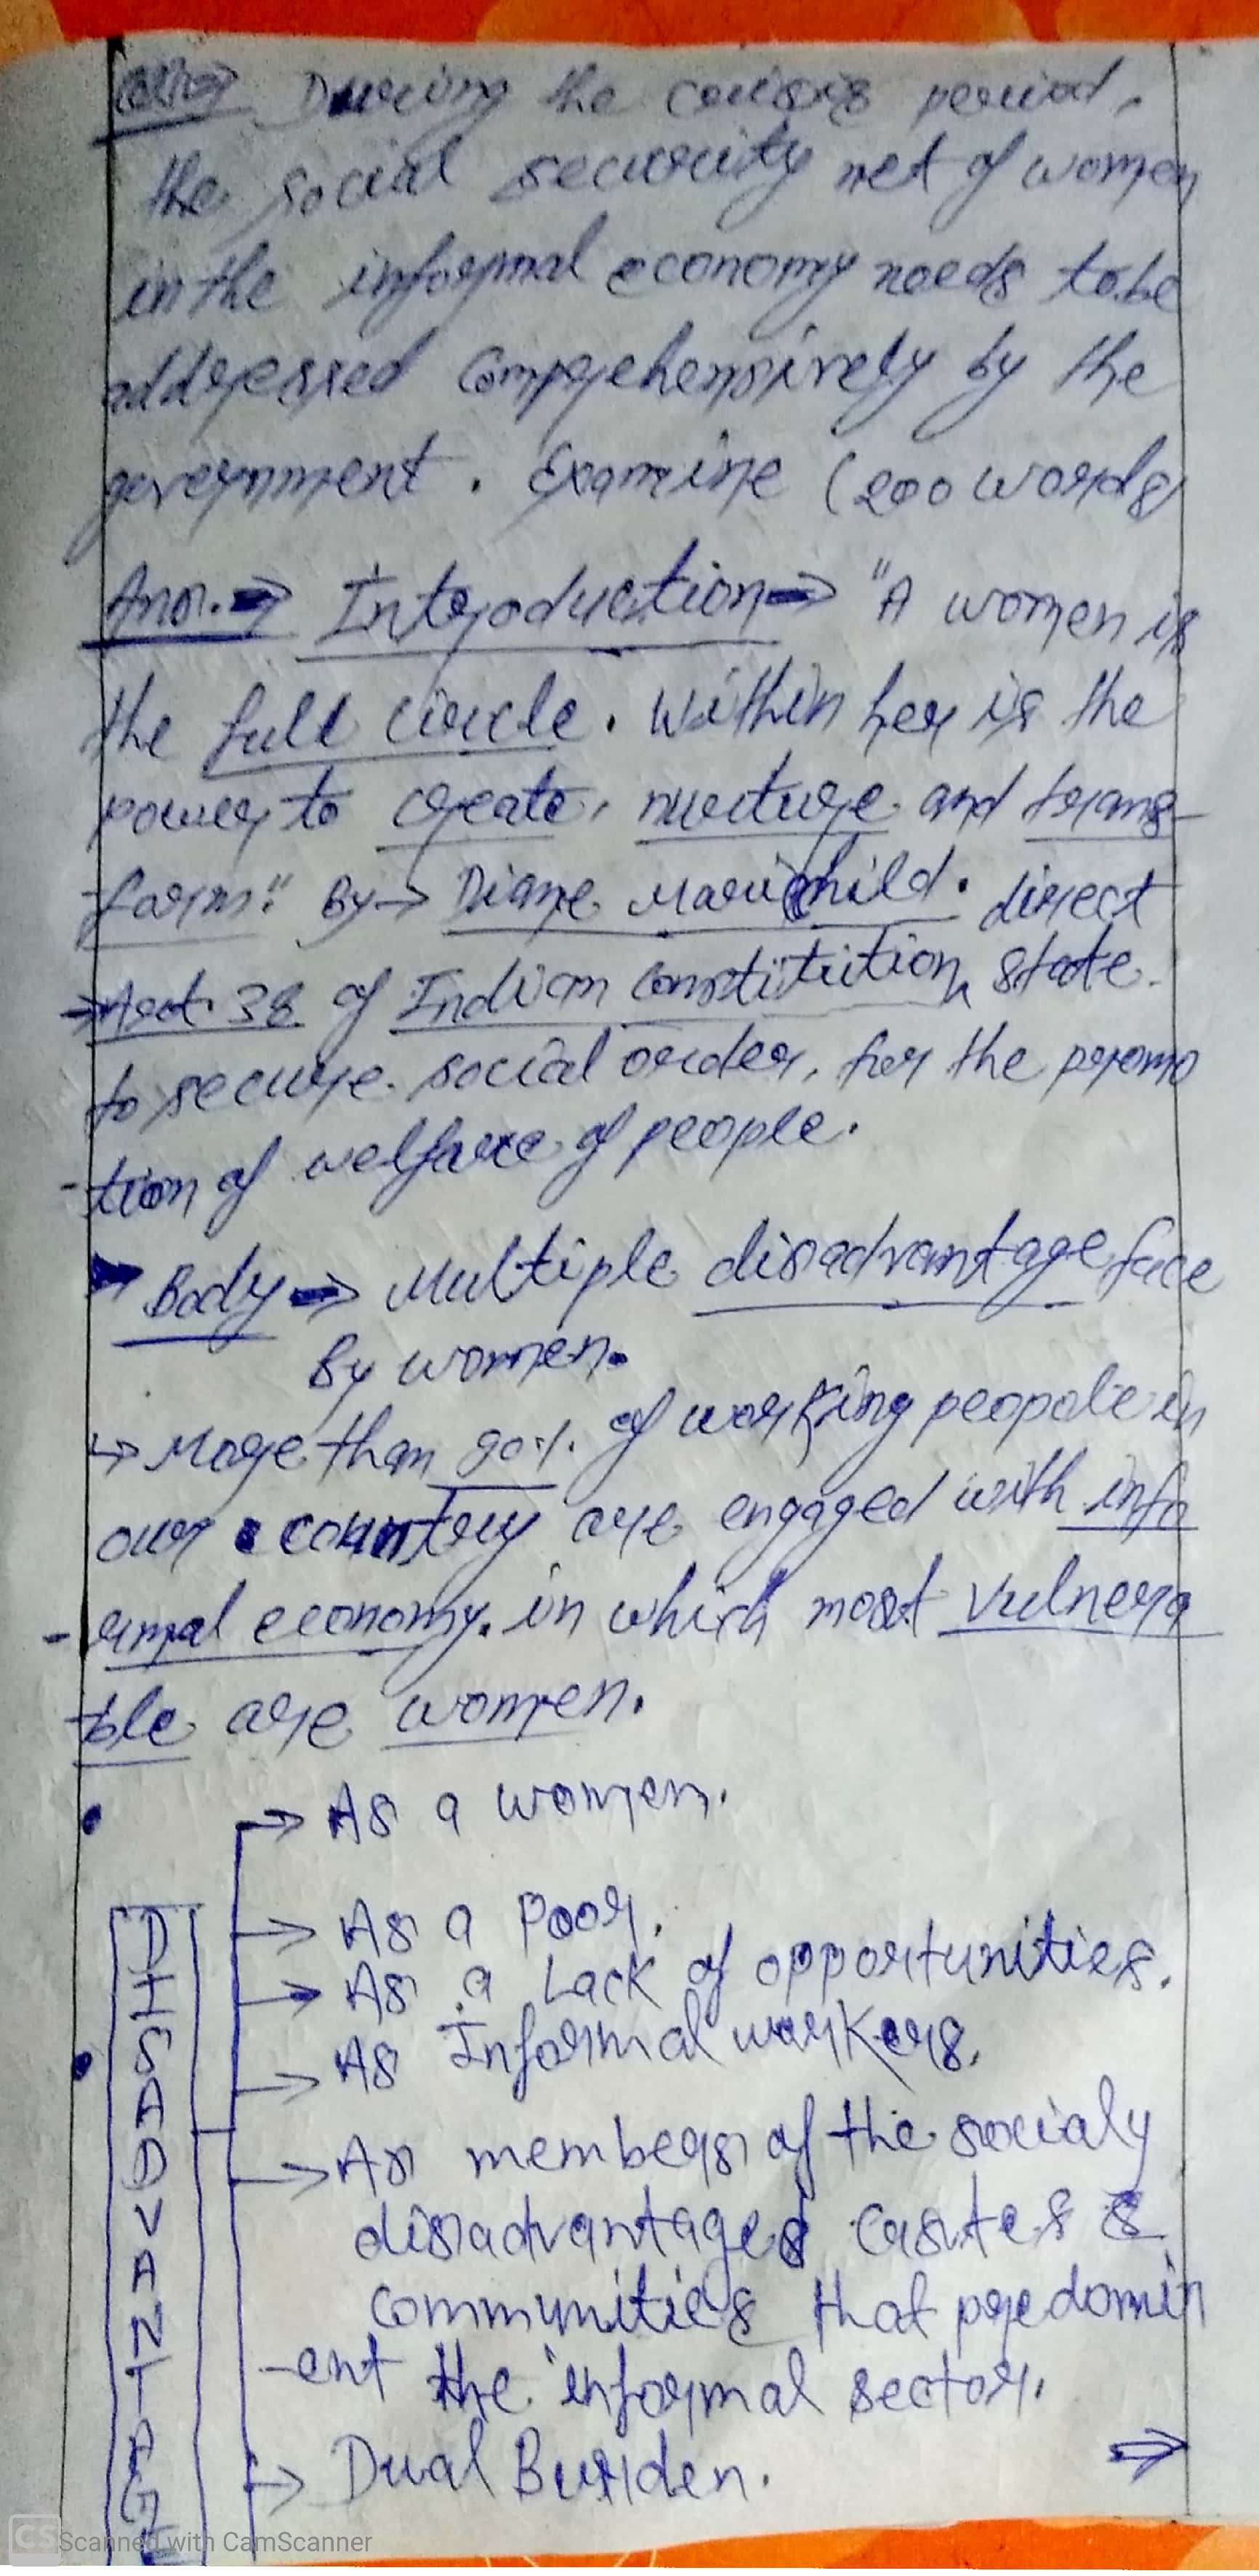 During the crisis period,
the social security net of women
in the informal economy needs to be
addressed comprehensively by the
government. Examine (200 words)
Ans. → Introduction → "A women is
the full circle. Within her is the
power to create, nurture and trans-
-form". By → Diane Mariechild. Direct
→ Art. 38 of Indian Constitution, state
to secure social order, for the promo
-tion of welfare of people.
Body → Multiple disadvantage face
By women.
↳ More than 90%. of working peopole in
our country are engaged with info
-rmal economy. in which most vulnera
-ble are women.
→ As a women.
→ As a Poor.
→ As a Lack of opportunities.
→ As Informal workers.
→ As members of the socialy
disadvantaged castes &
communities that predomin
-ent the informal sector.
→ Dual Burden. ⇒
DISADVANTAGE
CS Scanned with CamScanner